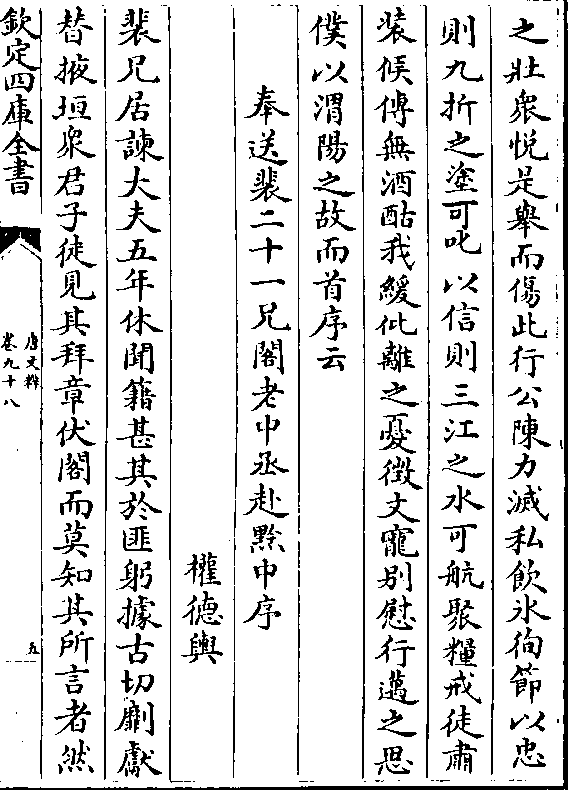 之壯衆悅是舉而傷此行公陳力滅私飲氷徇節以忠
則九折之塗可叱以信則三江之水可航聚糧戒徒肅
装候傳無酒酤我緩仳離之憂徴文寵别慰行邁之思
僕以渭陽之故而首序云
奉送裴二十一兄閣老中丞赴黔中序
權德輿
裴兄居諫大夫五年休聞籍甚其於匪躬據古切劘獻
替掖垣衆君子徒見其拜章伏閣而莫知其所言者然
欽定四庫全書
唐文粹
卷九十八
五